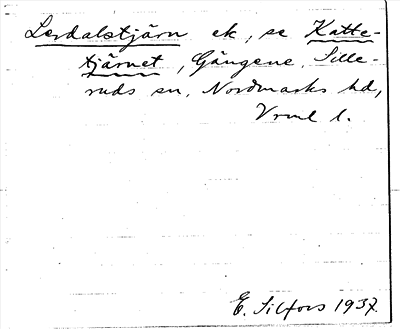 Lerdalstjärn ek, se Katte-
tjärnet, Gängene, Sille-
ruds sn, Nordmarks hd,
Vrml l.
E. Silfors 1937.